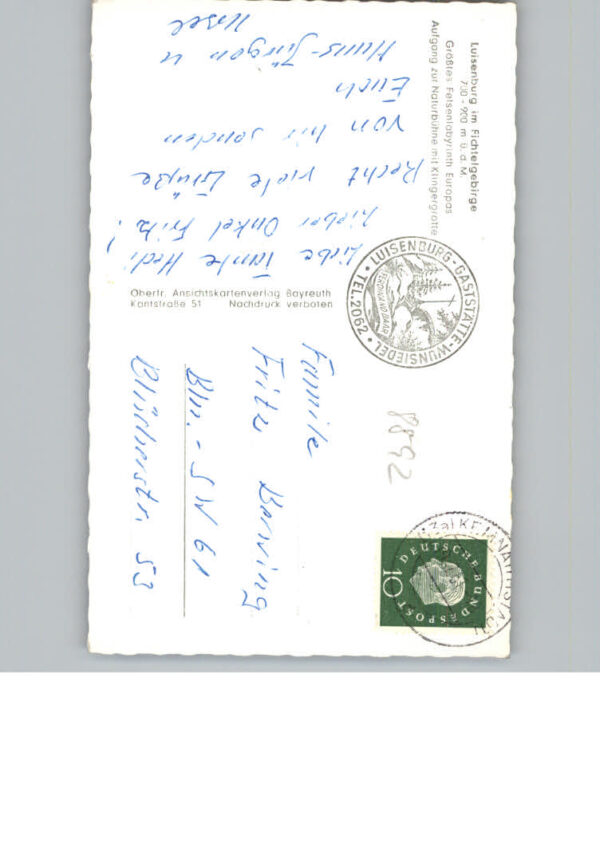 Luisenburg im Fichtelgebirge
700-900 m ü. d. M.
Größtes Felsenlabyrinth Europas
Aufgang zur Naturbühne mit Klingergrotte
Liebe Tante Hedi
Lieber Onkel Fritz!
Recht viele Grüße
von hir senden
Euch
Hans-Jürgen u
Ursel
Oberfr. Ansichtskartenverlag Bayreuth
Kantstraße 51 Nachdruck verboten
LUISENBURG-GASTSTÄTTE-WUNSIEDEL
TEL.2092
Familie
Fritz Berving
Bln.-SW 61
Blücherstr. 53
8892
DEUTSCHE BUNDESPOST
10
KEMNATH STADT